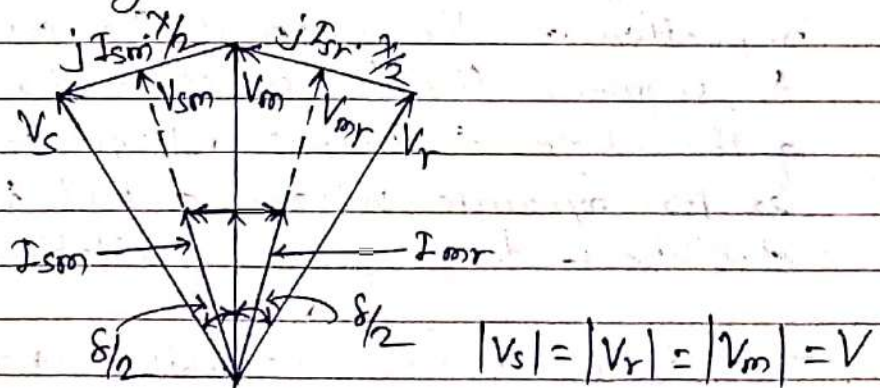 jIsm x/2 jIsr x/2
Vs Vsm Vm Vmr Vr
Ism Imr
δ/2 δ/2
|Vs| = |Vr| = |Vm| = V